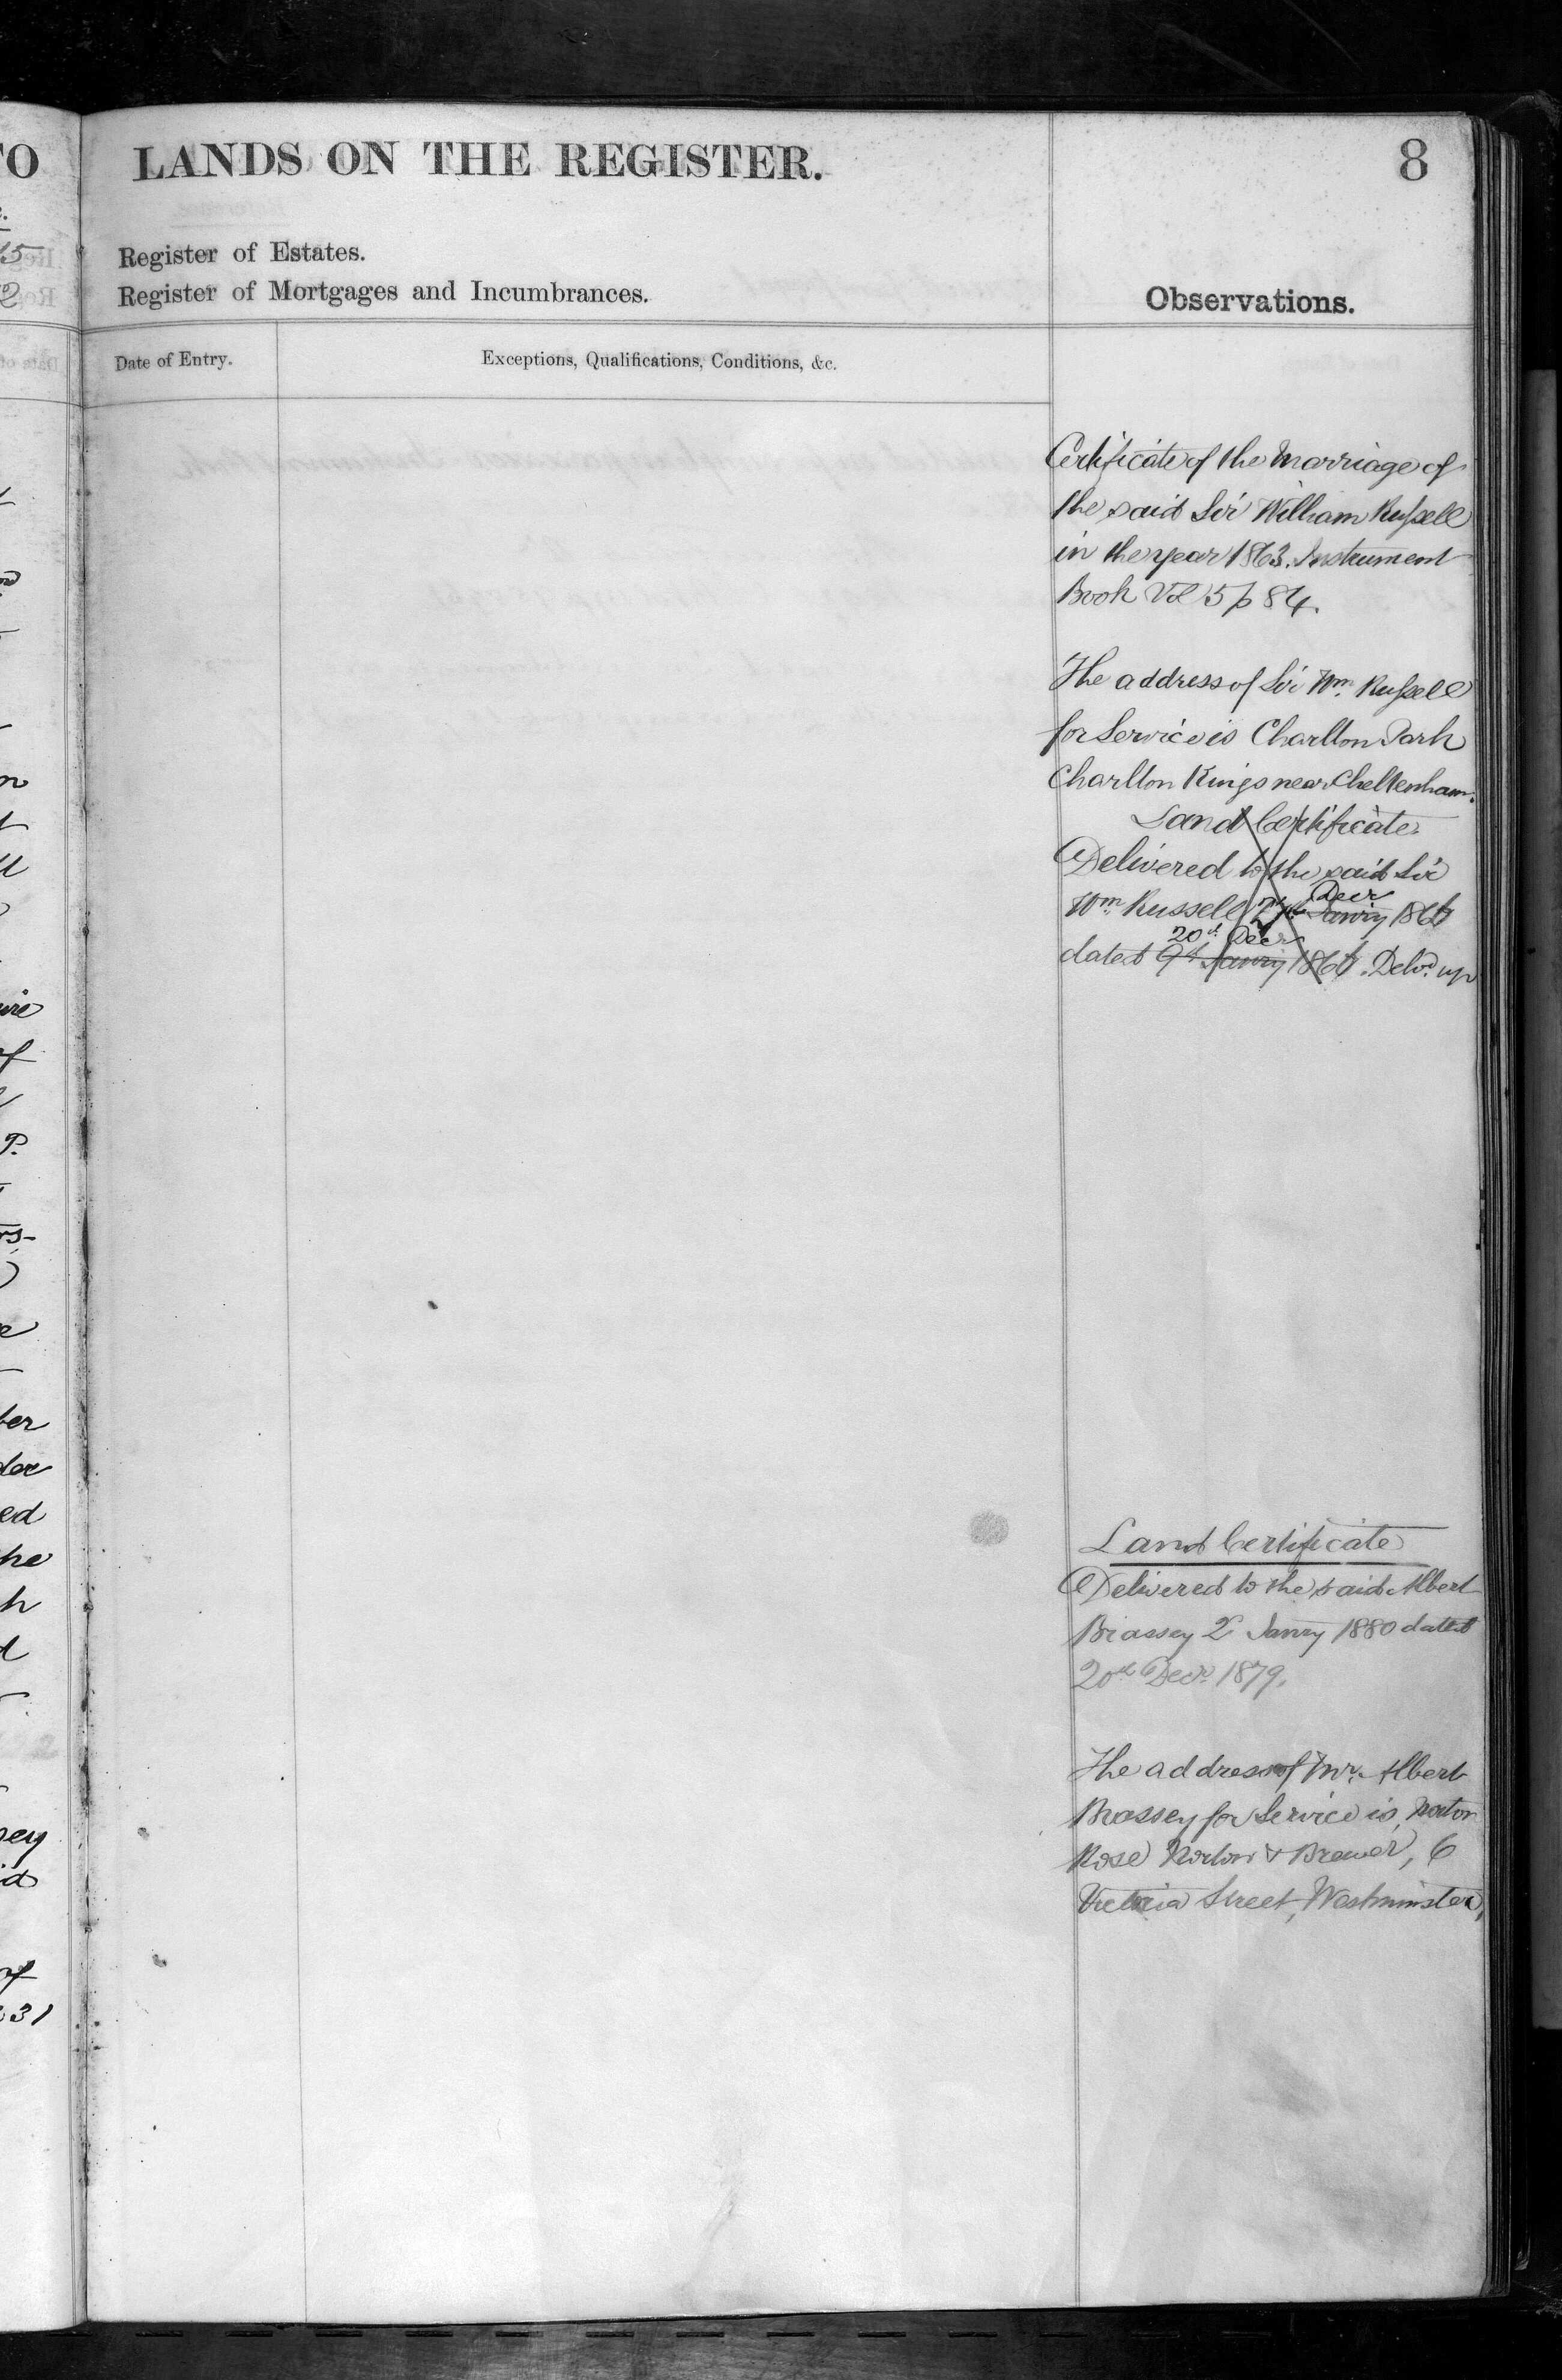 TO
LANDS ON THE REGISTER.
8
Register of Estates.
Register of Mortgages and Incumbrances.
Observations.
Date of Entry.
Exceptions, Qualifications, Conditions, &c.
Certificate of the Marriage of
the said Sir William Russell
in the year 1863. Instrument
Book Vol 5 p 84.
The address of Sir Wm. Russell
for Service is Charlton Park
Charlton Kings near Cheltenham.
Land Certificate
Delivered to the said Sir
Decr
Wm. Russell Janry 186
20th Decr
dated 9th Janry 186 . Delvd. up
Land Certificate
Delivered to the said Albert
Brassey 2d Janry 1880 dated
20th Decr. 1879.
The address of Mr. Albert
Brassey for Service is, Norton
Rose Norton & Brewer, 6
Victoria Street, Westminster,